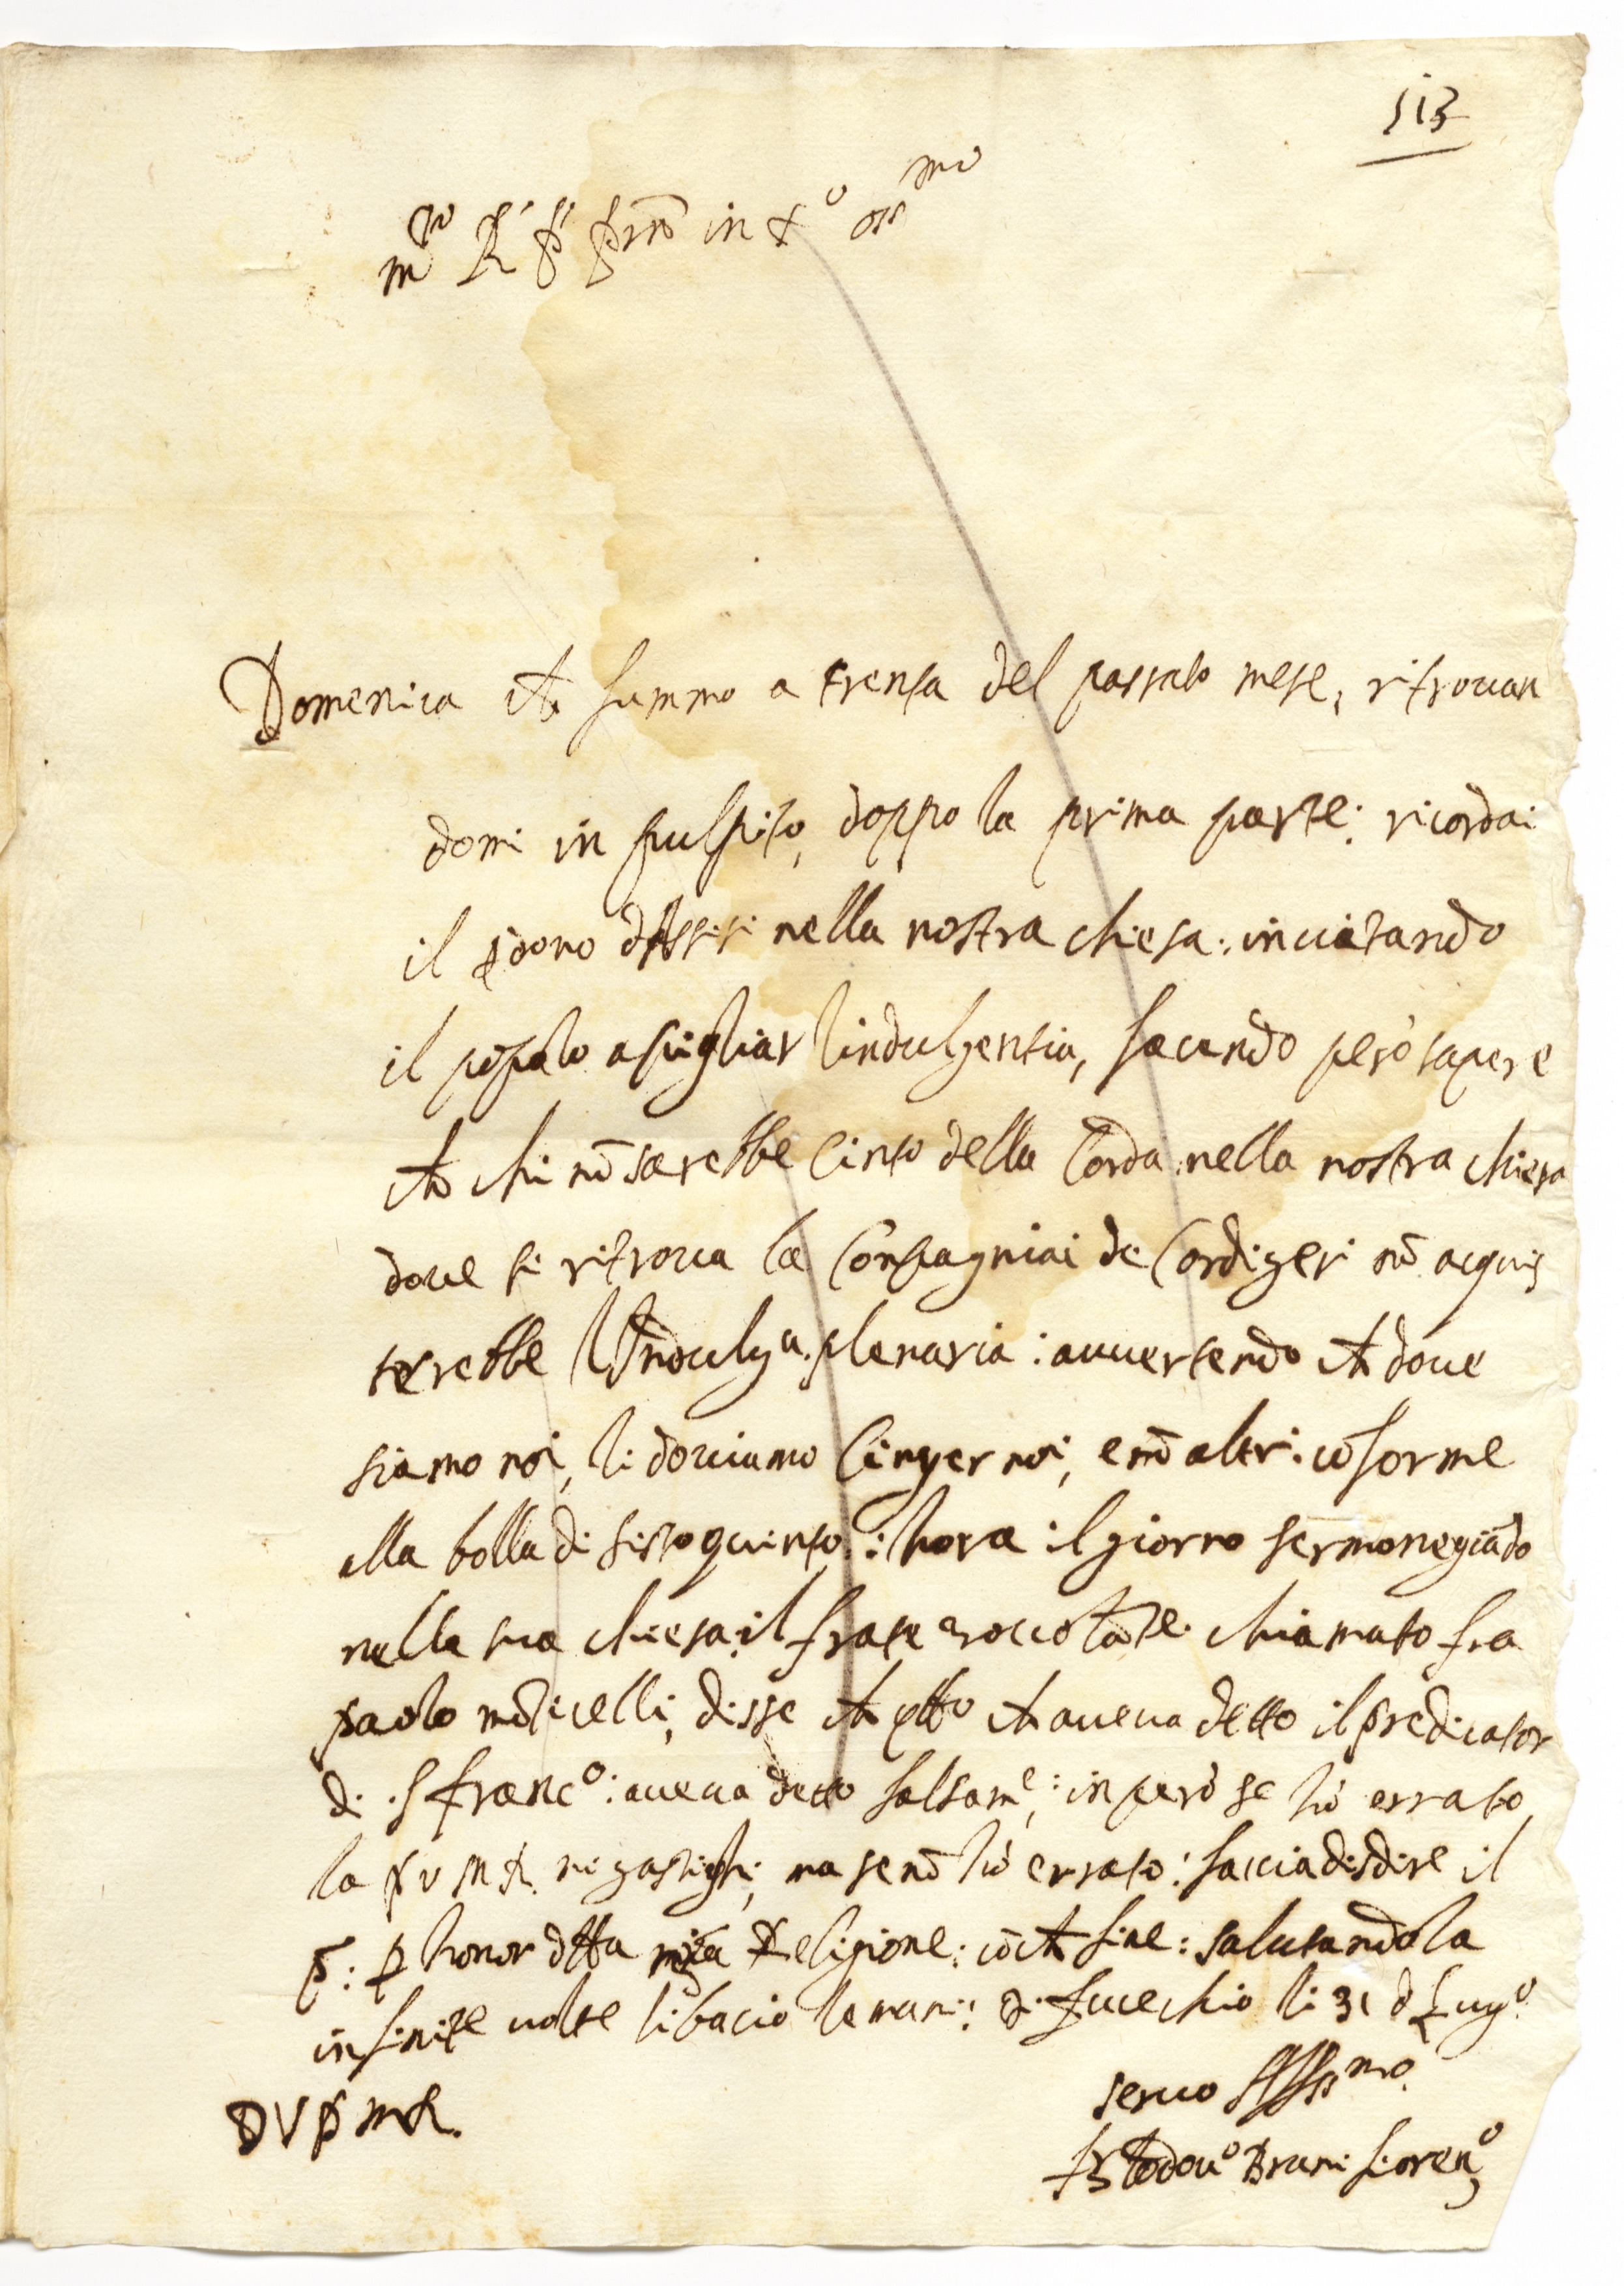 113
m.to R. P. pron in X.o oss.mo
Domenica che fummo a trenta del passato mese, ritrouan
domi in pulpito, doppo la prima parte: ricordai
il pdono d'Assisi nella nostra chiesa: inuitando
il popolo a pigliar lindulgentia, facendo però sapere
che chi nō sarebbe Cinto della Corda nella nostra chiesa
doue si ritroua la Compagniai de Cordigeri nō acquis
terebbe l'Indulg.a plenaria: auuertendo che doue
siamo noi, li douiamo Cinger noi, e nō altri: cōforme
alla bolla di sisto quinto: hora il giorno sermonegiādo
nella sua chiesa il frate zoccolāte chiamato fra
paolo mōticelli, disse che qto che aueua detto il predicator
di .S franc.o: aueua detto falsam.e: inperò se hò errato
la P V M R. mi gastighi, ma se nō hò errato: faccia disdire il
P: p honor dlla nrā Religione: cō che fine: salutandola
infinite uolte li bacio le mani: di fucechio li 31 d Lug.o
seruo Aff.mo
D V P M R.
fr Lodou.o Bruni fioren.o